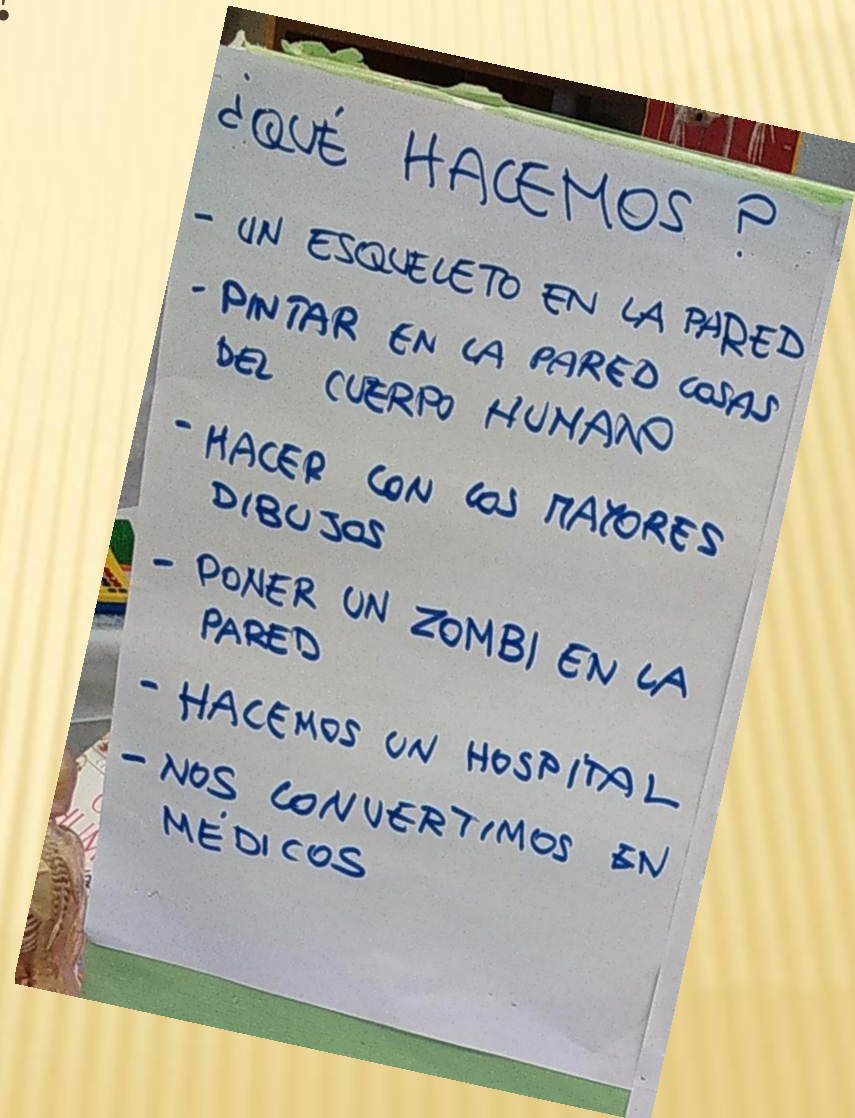 ¿QUÉ HACEMOS?
- UN ESQUELETO EN LA PARED
- PINTAR EN LA PARED COSAS
DEL CUERPO HUMANO
- HACER CON LOS MAYORES
DIBUJOS
- PONER UN ZOMBI EN LA
PARED
- HACEMOS UN HOSPITAL
- NOS CONVERTIMOS EN
MÉDICOS